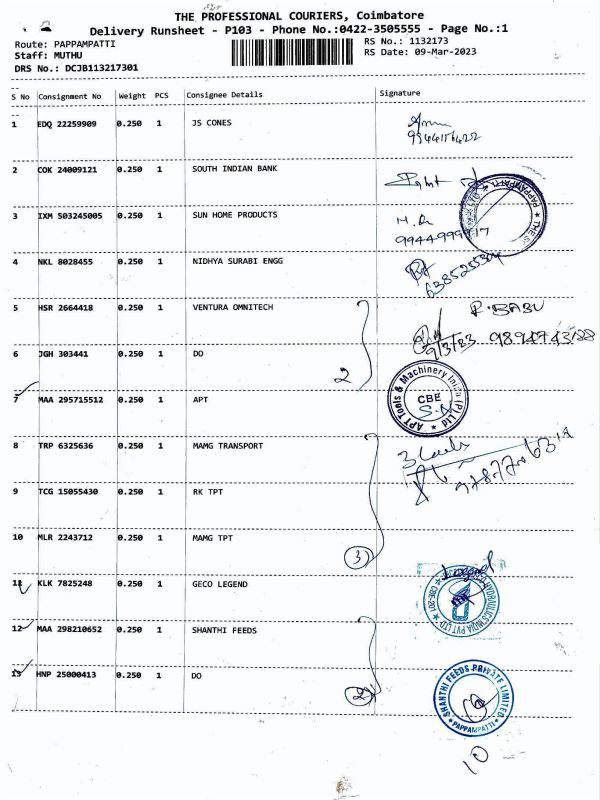 THE PROFESSIONAL COURIERS, Coimbatore
Delivery Runsheet - P103 - Phone No.:0422-3505555 - Page No.:1
Route: PAPPAMPATTI
RS No.: 1132173
Staff: MUTHU
RS Date: 09-Mar-2023
DRS No.: DCJB113217301
S No Consignment No Weight PCS Consignee Details Signature
1 EDQ 22259909 0.250 1 JS CONES
2 COK 24009121 0.250 1 SOUTH INDIAN BANK
PAPPAMPATTI
3 IXM 503245005 0.250 1 SUN HOME PRODUCTS
4 NKL 8028455 0.250 1 NIDHYA SURABI ENGG
5 HSR 2664418 0.250 1 VENTURA OMNITECH
R. BABU
9/3/23
6 JGH 303441 0.250 1 DO
2
7 MAA 295715512 0.250 1 APT
APT Tools & Machinery India (P) Ltd
CBE
8 TRP 6325636 0.250 1 MAMG TRANSPORT
9 TCG 15055430 0.250 1 RK TPT
10 MLR 2243712 0.250 1 MAMG TPT
3
11 KLK 7825248 0.250 1 GECO LEGEND
HYDRAULICS INDIA PVT LTD
12 MAA 298210652 0.250 1 SHANTHI FEEDS
13 HNP 25000413 0.250 1 DO
SHANTHI FEEDS PRIVATE LIMITED
PAPPAMPATTI
10